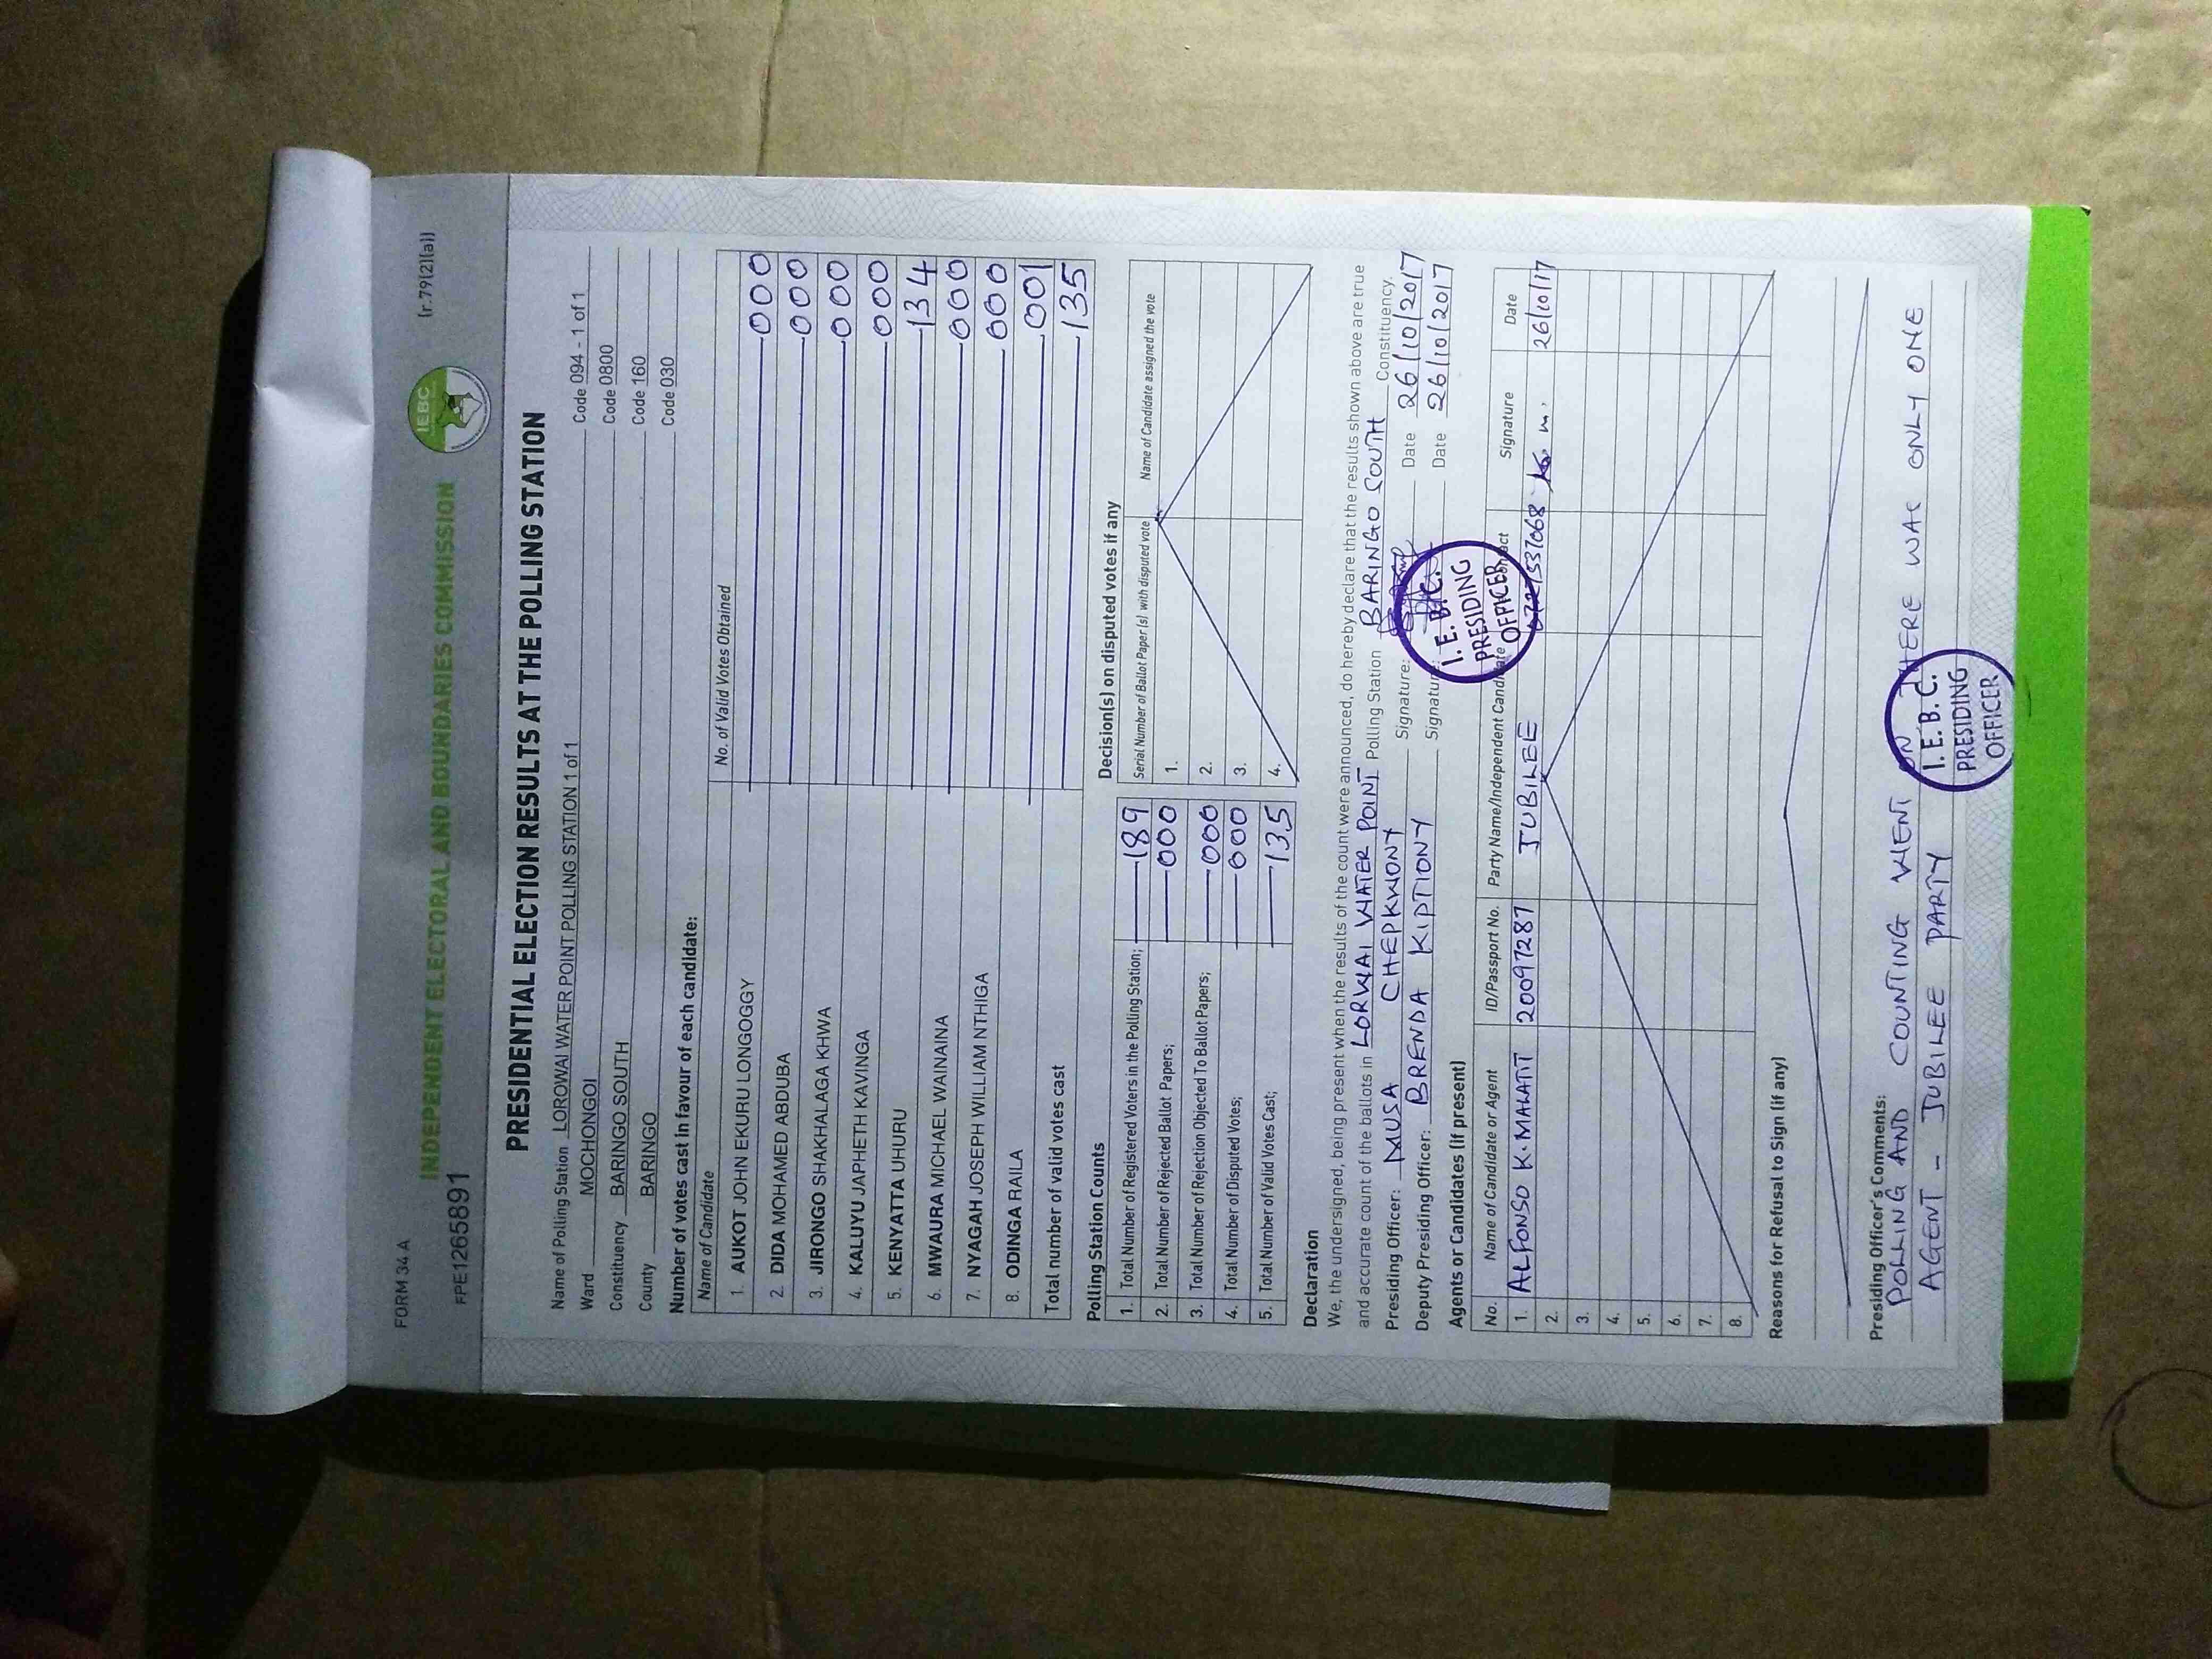 FORM 34 A
(r.79(2)(a))
FPE1265891
INDEPENDENT ELECTORAL AND BOUNDARIES COMMISSION
IEBC
PRESIDENTIAL ELECTION RESULTS AT THE POLLING STATION
Name of Polling Station LOROWAI WATER POINT POLLING STATION 1 of 1 Code 094 - 1 of 1
Ward MOCHONGOI Code 0800
Constituency BARINGO SOUTH Code 160
County BARINGO Code 030
Number of votes cast in favour of each candidate:
Name of Candidate No. of Valid Votes Obtained
1. AUKOT JOHN EKURU LONGOGGY 000
2. DIDA MOHAMED ABDUBA 000
3. JIRONGO SHAKHALAGA KHWA 000
4. KALUYU JAPHETH KAVINGA 000
5. KENYATTA UHURU 134
6. MWAURA MICHAEL WAINAINA 000
7. NYAGAH JOSEPH WILLIAM NTHIGA 000
8. ODINGA RAILA 001
Total number of valid votes cast 135
Polling Station Counts
1. Total Number of Registered Voters in the Polling Station; 189
2. Total Number of Rejected Ballot Papers; 000
3. Total Number of Rejection Objected To Ballot Papers; 000
4. Total Number of Disputed Votes; 000
5. Total Number of Valid Votes Cast; 135
Decision(s) on disputed votes if any
Serial Number of Ballot Paper (s) with disputed vote Name of Candidate assigned the vote
1.
2.
3.
4.
Declaration
We, the undersigned, being present when the results of the count were announced, do hereby declare that the results shown above are true
and accurate count of the ballots in LORWAI WATER POINT Polling Station BARINGO SOUTH Constituency.
Presiding Officer: MUSA CHEPKWONY Signature: Date 26/10/2017
Deputy Presiding Officer: BRENDA KIPTIONY Signature: Date 26/10/2017
I. E. B. C.
PRESIDING
OFFICER
Agents or Candidates (if present)
No. Name of Candidate or Agent ID/Passport No. Party Name/Independent Candidate Contact Signature Date
1. ALFONSO K. MALATIT 20097287 JUBILEE 26/10/17
2.
3.
4.
5.
6.
7.
8.
Reasons for Refusal to Sign (if any)
Presiding Officer's Comments:
POLLING AND COUNTING WENT ON THERE WAS ONLY ONE
AGENT - JUBILEE PARTY
I. E. B. C.
PRESIDING
OFFICER